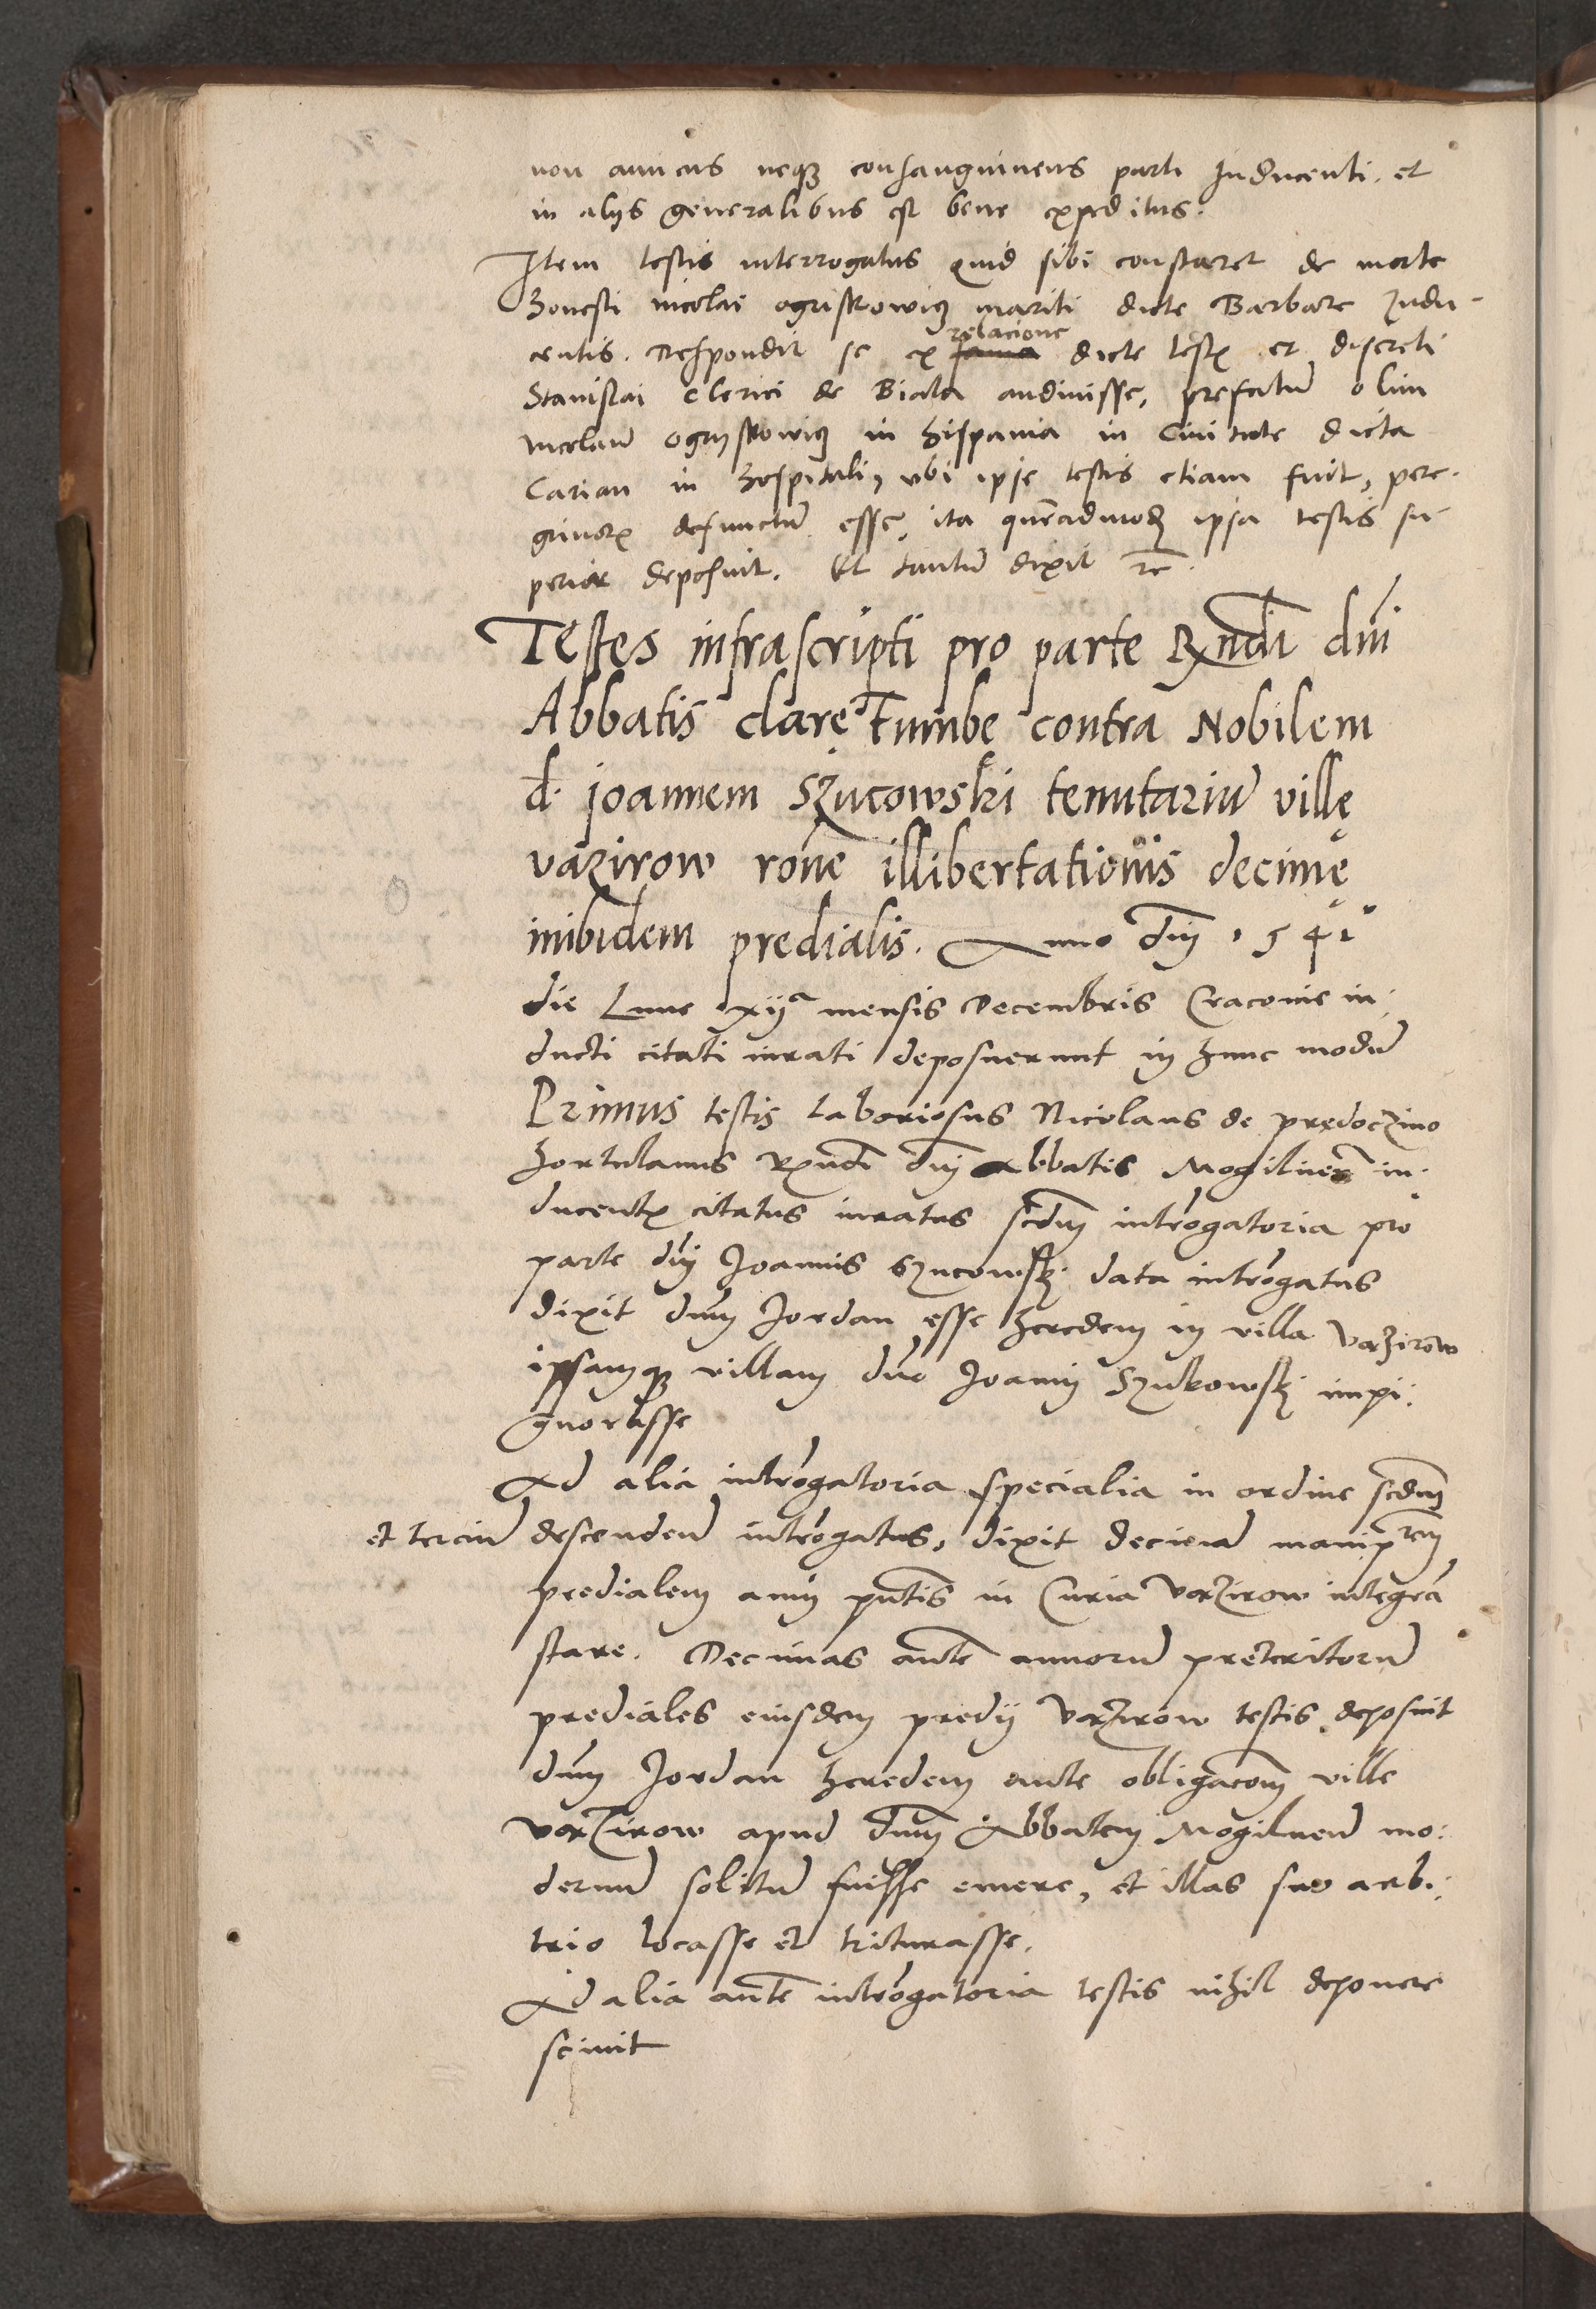 non amicus neque consanguineus parti Inducenti. et
in alijs generalibus est bene expeditus.
Item testis interrogatus quid sibi constaret de morte
honesti nicolai ogriskowicz mariti dicte Barbare Indu-
centis. Respondit se ex relacione fama dicte testis et discreti
Stanislai clerici de Biala audiuisse, prefatū olim
nicolaū ogryskowicz in hispania in Ciuitate dicta
Carian in hospitali, vbi ipse testis etiam fuit, pere-
grinorum defunctū esse, ita quēadmodum ipsa testis su-
perior deposuit. Et tantū dixit rc̄.
Testes infrascripti pro parte Rx̄ndi dn̄i
Abbatis clare Tumbe contra Nobilem
d. joannem Szucowski tenutariū villę
varzirow rōne illibertationis decimę
inibidem predialis. Anno dn̄j 1541
die Lune xij^a mensis Decembris Cracouie in:
ducti citati iurati deposuerunt in hunc modū
Primus testis Laboriosus Nicolaus de prędoczino
hortulanus Rx̄ndi dn̄j Abbatis Mogilneñ in:
ducentis citatus iuratus sc̄dm intrōgatoria pro
parte dn̄j Joannis Szucowskj data intrōgatus
dixit dn̄m Jordan esse heredem in villa varzirow
ipsamque villam dn̄o Joannj Szukowskj impi:
gnorasse
Ad alia intrōgatoria specialia in ordine sc̄dm
et terciū descendendū intrōgatus, dixit decimā manip^rem
predialem annj pn̄tis in Curia varzirow integrā
stare. Decimas aūte annorū preteritorū
prediales eiusdem predij varzirow testis deposuit
dn̄m Jordan heredem ante obligacōm ville
varzirow apud dn̄m Abbatem Mogilneñ mo:
dernū solitū fuisse emere, et illas suo arbi:
trio locasse et triturasse.
Ad alia aūte intrōgatoria testis nihil deponere
sciuit